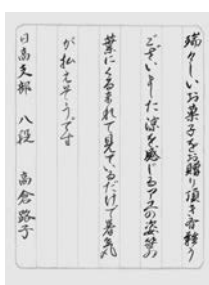 瑞々しいお菓子をお贈り頂き有難う
ございました涼を感じる
葉にくるまれて見ているだけで暑気
が払えそうです
日高支部 八段 高倉路子